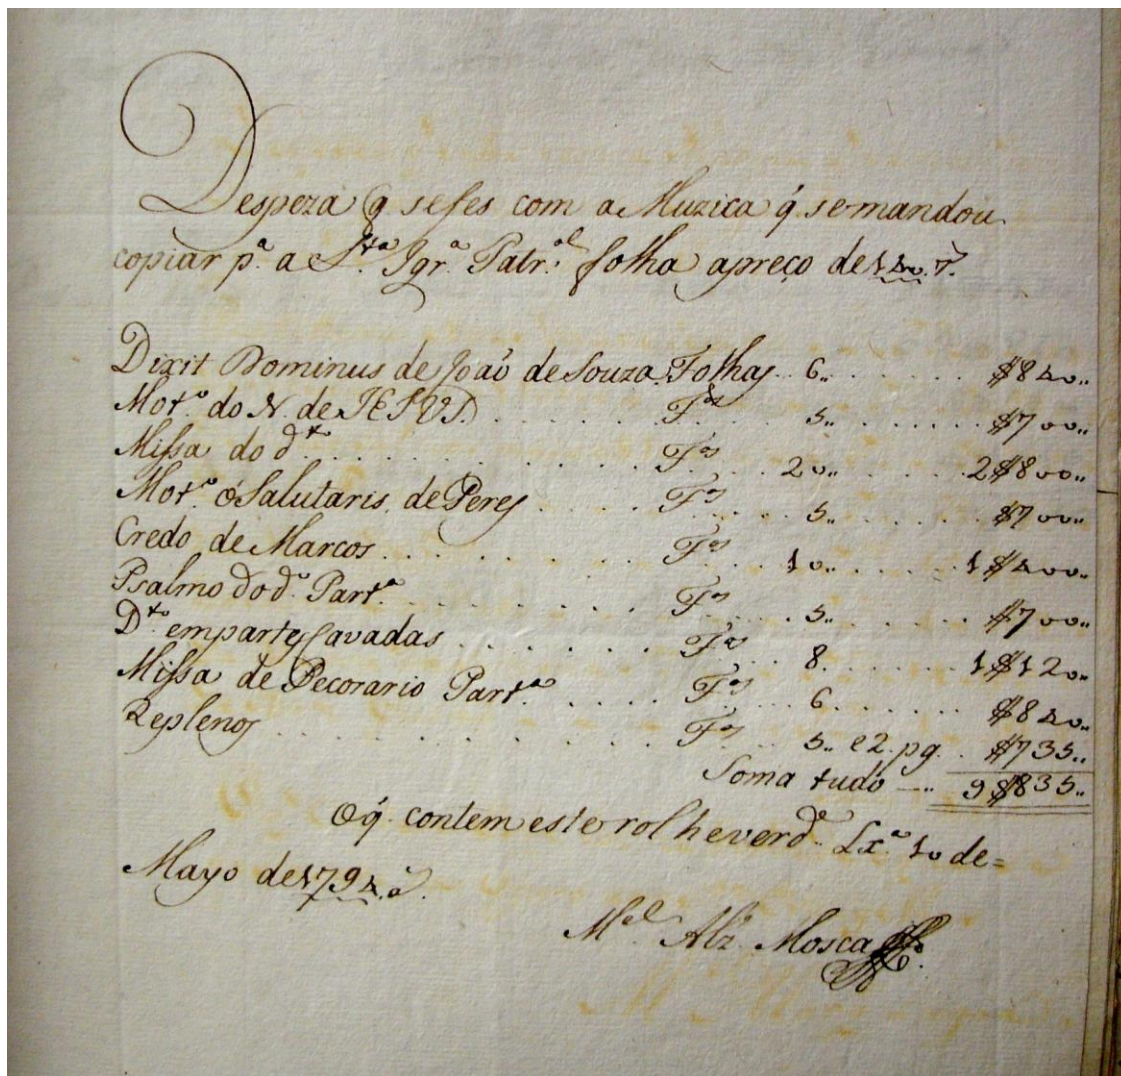 Despeza q̃ se fes com a Muzica q̃ se mandou
copiar p.ª a S.ta Igr.ª Patr.al folha apreço de 140 r.
Dixit Dominus de João de Souza. Folhas 6,, $840,,
Mot.º do N. de JESVS F.as 5,, $700,,
Missa do d.to F.as 20,, 2$800,,
Mot.º ó Salutaris de Peres F.as 5,, $700,,
Credo de Marcos F.as 10,, 1$400,,
Psalmo do d.º Part.ª F.as 5,, $700,,
D.to em partes Cavadas F.as 8 1$120,,
Missa de Pecorario Part.ª F.as 6 $840,,
Replenos F.as 5,, e 2. pg. $735,,
Soma tudo 9$835,,
O q̃ contem este rol he verd.e Lx.ª 10 de=
Mayo de 1794.a
M.el Alz Mosca